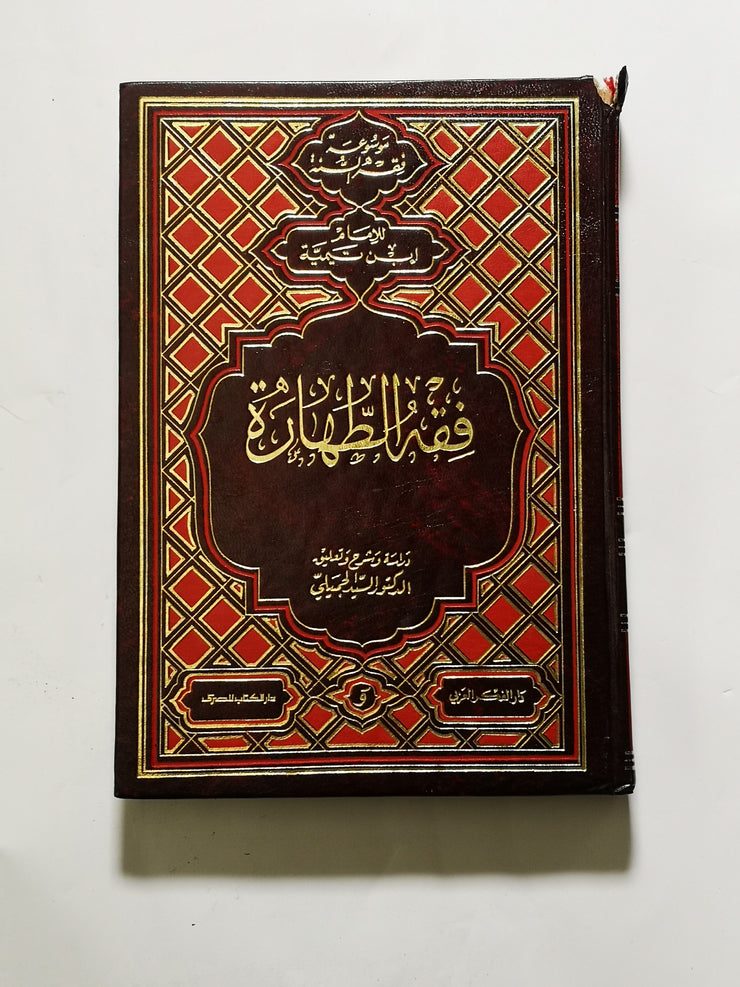 موسوعة
فقه السنة
للإمام
ابن تيمية
فِقهُ الطَّهارَة
دراسة وشرح وتعليق
الدكتور السيد الجميلي
دار الفكر العربي
و
دار الكتاب المصرى